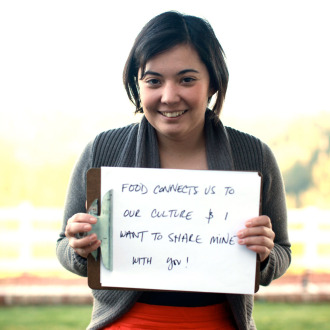 FOOD CONNECTS US TO
OUR CULTURE & I
WANT TO SHARE MINE
WITH YOU!